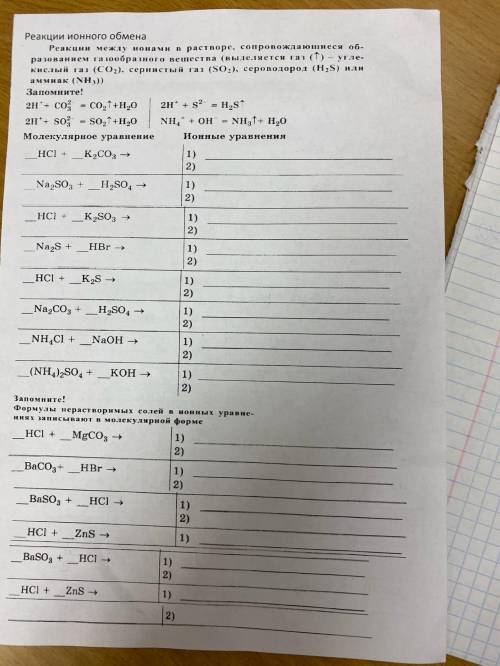 Реакции ионного обмена
Реакции между ионами в растворе, сопровождающиеся об-
разованием газообразного вещества (выделяется газ (↑) – угле-
кислый газ (CO₂), сернистый газ (SO₂), сероводород (H₂S) или
аммиак (NH₃))
Запомните!
2H⁺+ CO₃²⁻ = CO₂↑+H₂O 2H⁺ + S²⁻ = H₂S↑
2H⁺+ SO₃²⁻ = SO₂↑+H₂O NH₄⁺ + OH⁻ = NH₃↑+ H₂O
Молекулярное уравнение Ионные уравнения
__HCl + __K₂CO₃ → 1)
2)
__Na₂SO₃ + __H₂SO₄ → 1)
2)
__HCl + __K₂SO₃ → 1)
2)
__Na₂S + __HBr → 1)
2)
__HCl + __K₂S → 1)
2)
__Na₂CO₃ + __H₂SO₄ → 1)
2)
__NH₄Cl + __NaOH → 1)
2)
__(NH₄)₂SO₄ + __KOH → 1)
2)
Запомните!
Формулы нерастворимых солей в ионных уравне-
ниях записывают в молекулярной форме
__HCl + __MgCO₃ → 1)
2)
__BaCO₃+ __HBr → 1)
2)
__BaSO₃ + __HCl → 1)
2)
__HCl + __ZnS → 1)
__BaSO₃ + __HCl → 1)
2)
__HCl + __ZnS → 1)
2)